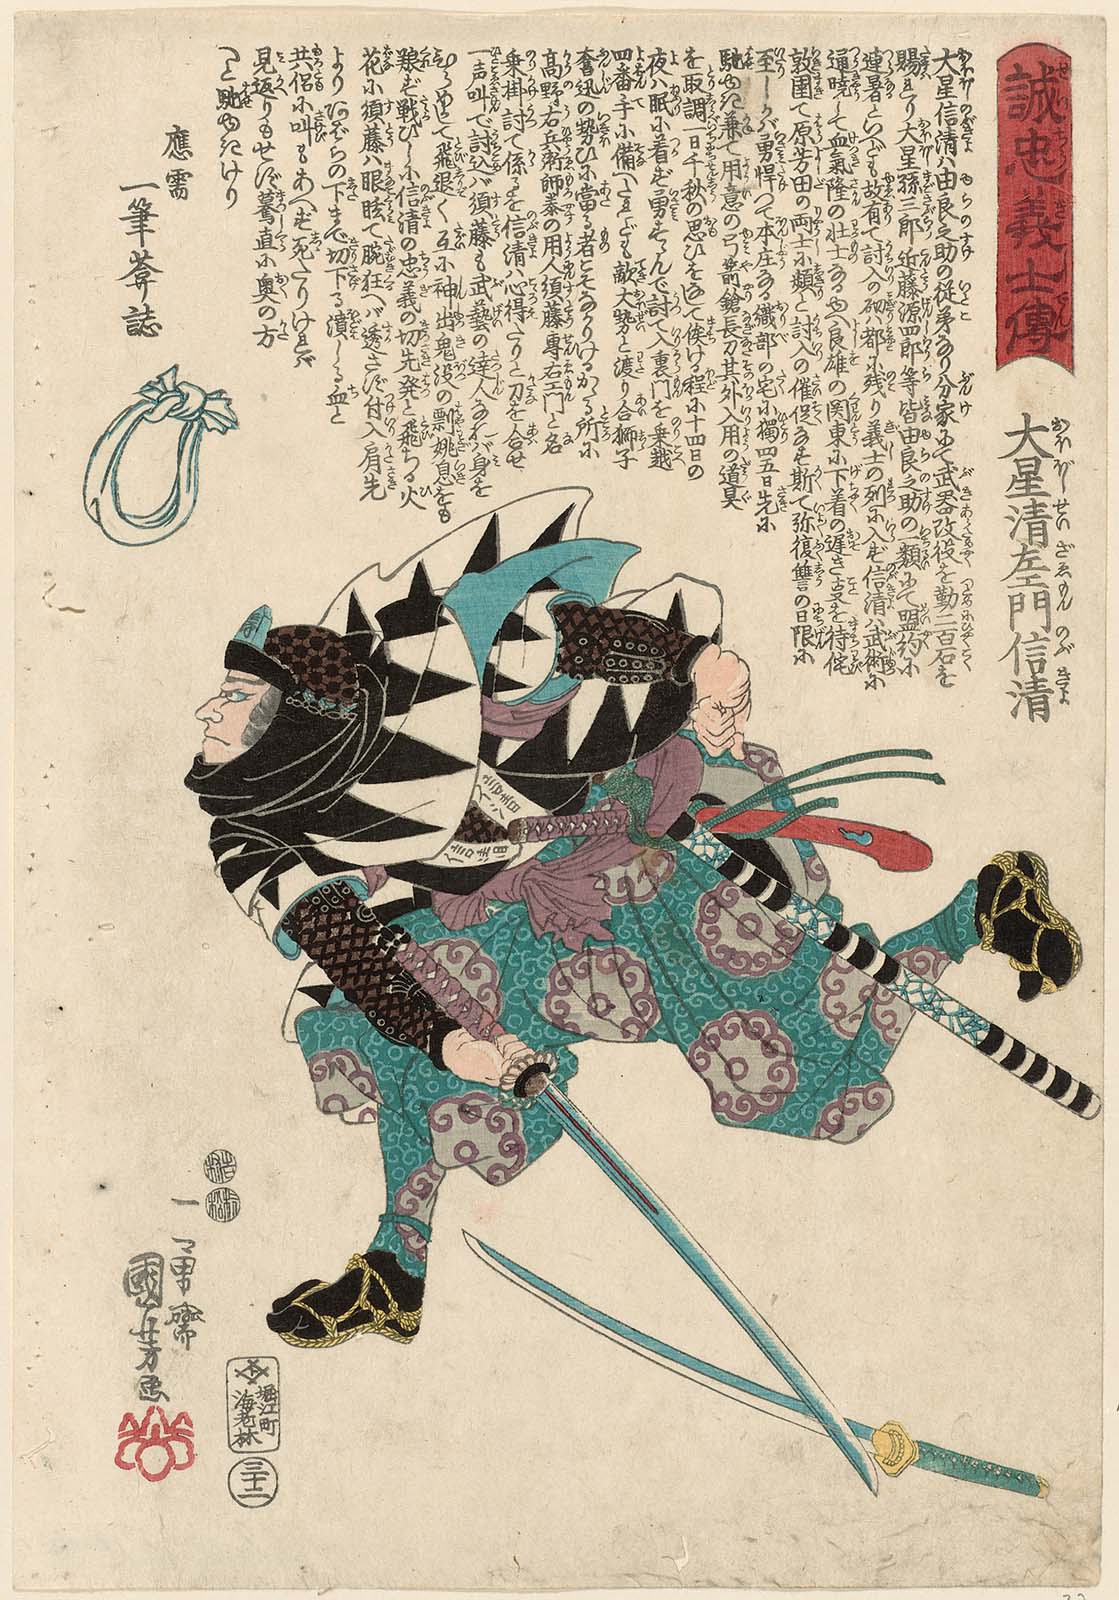 誠忠義士傳
大星清左エ門信清
大星信清ハ由良之助の従弟なり分家にて武器改役を勤二百石を
賜ハれり大星孫三郎近藤源四郎等皆由良之助の一類にて盟約に
連署といへども故有て討入の砌ハ都に残り義士の列に入ず信清ハ武術に
通暁して血氣隆の壮士なるゆへ良雄の関東に下着の遅きを待侘
敦圉て原芳田の両士に類と討入の催促なす斯て弥復讐の日限に
至しかバ勇悍つて本庄なる織部の宅に獨四五日先に
馳ゆき兼て用意の弓箭鎗長刀其外入用の道具
を取調一日千秋の思ひをなして俟ける程に十四日の
夜ハ眠に着ず勇すゝんで討て入裏門を乗越
四番手に備へたれども敵大勢と渡り合獅子
奮迅の勢ひに當る者こそなかりけるかゝる所に
髙野右兵衛師泰の用人須藤專右エ門と名
乗掛討て係るを信清ハ心得たりと刀を合せ
一声叫で討込バ須藤も武藝の達人なれバ身を
飛退く互に神出鬼没の剽姚息をも
戦ひしに信清の忠義の切先発と飛ちる火
花に須藤ハ眼眩て腕狂へバ透さず付入肩先
より あばらの下まで切下る漬しる血と
共侶に叫もあへず死たりけれバ
見返りもせず驀直に奥の方
へと馳ゆきけり
應需
一筆菴誌
一勇齋
國芳画
堀江町
海老林
三十二